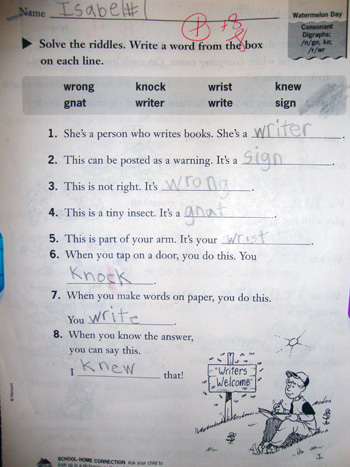 Name Isabel #1
+3
Watermelon Day
Consonant
Digraphs:
/n/gn, kn;
/r/wr
Solve the riddles. Write a word from the box
on each line.
wrong knock wrist knew
gnat writer write sign
1. She's a person who writes books. She's a writer.
2. This can be posted as a warning. It's a sign.
3. This is not right. It's wrong.
4. This is a tiny insect. It's a gnat.
5. This is part of your arm. It's your wrist.
6. When you tap on a door, you do this. You
knock.
7. When you make words on paper, you do this.
You write.
8. When you know the answer,
you can say this.
I knew that!
Writers
Welcome
SCHOOL-HOME CONNECTION Ask your child to